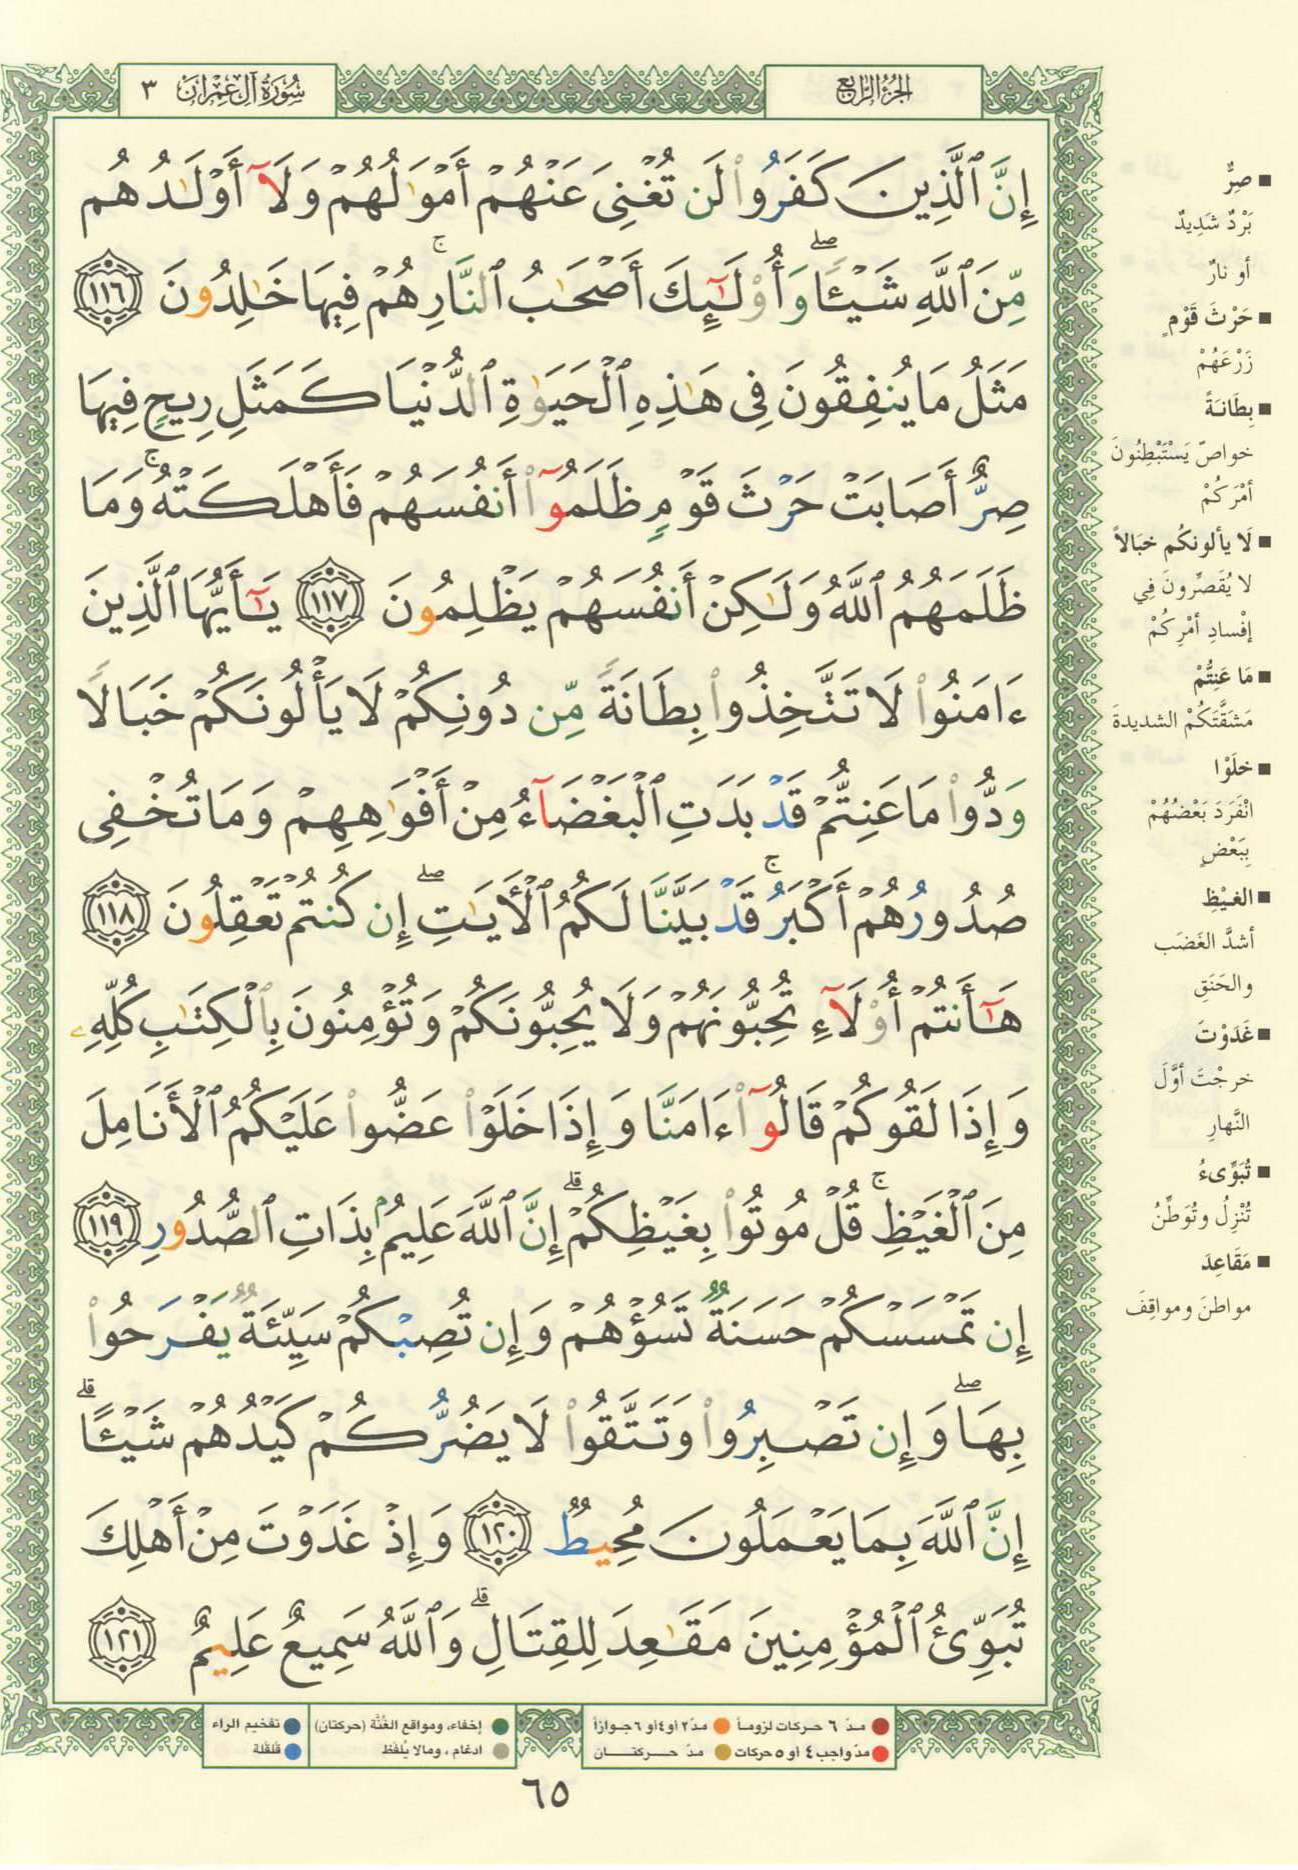 الجزء الرابع
سُورَةُ آلِ عِمْرَان ٣
إِنَّ ٱلَّذِينَ كَفَرُوا۟ لَن تُغْنِىَ عَنْهُمْ أَمْوَٰلُهُمْ وَلَآ أَوْلَـٰدُهُم
مِّنَ ٱللَّهِ شَيْـًٔا ۖ وَأُو۟لَـٰٓئِكَ أَصْحَـٰبُ ٱلنَّارِ ۚ هُمْ فِيهَا خَـٰلِدُونَ ١١٦
مَثَلُ مَا يُنفِقُونَ فِى هَـٰذِهِ ٱلْحَيَوٰةِ ٱلدُّنْيَا كَمَثَلِ رِيحٍ فِيهَا
صِرٌّ أَصَابَتْ حَرْثَ قَوْمٍ ظَلَمُوٓا۟ أَنفُسَهُمْ فَأَهْلَكَتْهُ ۚ وَمَا
ظَلَمَهُمُ ٱللَّهُ وَلَـٰكِنْ أَنفُسَهُمْ يَظْلِمُونَ ١١٧ يَـٰٓأَيُّهَا ٱلَّذِينَ
ءَامَنُوا۟ لَا تَتَّخِذُوا۟ بِطَانَةً مِّن دُونِكُمْ لَا يَأْلُونَكُمْ خَبَالًا
وَدُّوا۟ مَا عَنِتُّمْ قَدْ بَدَتِ ٱلْبَغْضَآءُ مِنْ أَفْوَٰهِهِمْ وَمَا تُخْفِى
صُدُورُهُمْ أَكْبَرُ ۚ قَدْ بَيَّنَّا لَكُمُ ٱلْـَٔايَـٰتِ ۖ إِن كُنتُمْ تَعْقِلُونَ ١١٨
هَـٰٓأَنتُمْ أُو۟لَآءِ تُحِبُّونَهُمْ وَلَا يُحِبُّونَكُمْ وَتُؤْمِنُونَ بِٱلْكِتَـٰبِ كُلِّهِۦ
وَإِذَا لَقُوكُمْ قَالُوٓا۟ ءَامَنَّا وَإِذَا خَلَوْا۟ عَضُّوا۟ عَلَيْكُمُ ٱلْأَنَامِلَ
مِنَ ٱلْغَيْظِ ۚ قُلْ مُوتُوا۟ بِغَيْظِكُمْ ۗ إِنَّ ٱللَّهَ عَلِيمٌۢ بِذَاتِ ٱلصُّدُورِ ١١٩
إِن تَمْسَسْكُمْ حَسَنَةٌ تَسُؤْهُمْ وَإِن تُصِبْكُمْ سَيِّئَةٌ يَفْرَحُوا۟
بِهَا ۖ وَإِن تَصْبِرُوا۟ وَتَتَّقُوا۟ لَا يَضُرُّكُمْ كَيْدُهُمْ شَيْـًٔا ۗ
إِنَّ ٱللَّهَ بِمَا يَعْمَلُونَ مُحِيطٌ ١٢٠ وَإِذْ غَدَوْتَ مِنْ أَهْلِكَ
تُبَوِّئُ ٱلْمُؤْمِنِينَ مَقَـٰعِدَ لِلْقِتَالِ ۗ وَٱللَّهُ سَمِيعٌ عَلِيمٌ ١٢١
■ صِرٌّ
بَرْدٌ شَدِيدٌ
أو نارٌ
■ حَرْثَ قَوْمٍ
زَرْعَهُمْ
■ بِطَانَةً
خواصّ يَسْتَبْطِنُونَ
أمْرَكُمْ
■ لَا يألونكُم خبَالاً
لا يُقَصِّرُونَ فِي
إفْسادِ أمْرِكُمْ
■ مَا عَنِتُّمْ
مَشَقَّتَكُمْ الشديدةَ
■ خلَوْا
انْفَرَدَ بَعْضُهُمْ
بِبَعْضٍ
■ الغيْظِ
أشدَّ الغَضَب
والحَنَقِ
■ غَدَوْتَ
خرجْتَ أوَّلَ
النَّهارِ
■ تُبَوِّىءُ
تُنْزِلُ وتُوَطِّنُ
■ مَقَاعِدَ
مواطنَ ومواقِفَ
مدّ ٦ حركات لزوماً
مدّ ٢ أو ٤ أو ٦ جوازاً
إخفاء، ومواقع الغُنَّة (حركتان)
تفخيم الراء
مدّ واجب ٤ أو ٥ حركات
مدّ حركتان
ادغام ، ومالا يُلفَظ
قلقلة
٦٥